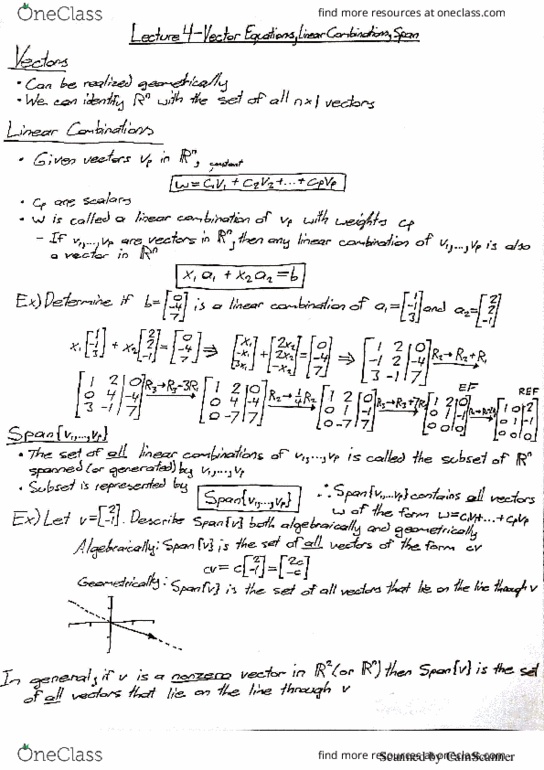 OneClass
find more resources at oneclass.com
Lecture 4 - Vector Equations, Linear Combinations, Span
Vectors
• Can be realized geometrically
• We can identify ℝⁿ with the set of all n×1 vectors
Linear Combinations
• Given vectors vₚ in ℝⁿ, constant
w = c₁v₁ + c₂v₂ + ... + cₚvₚ
• cₚ are scalars
• w is called a linear combination of vₚ with weights cₚ
- If v₁,...,vₚ are vectors in ℝⁿ, then any linear combination of v₁,...,vₚ is also
a vector in ℝⁿ
x₁a₁ + x₂a₂ = b
Ex) Determine if b = [0 -4 7] is a linear combination of a₁ = [1 -1 3] and a₂ = [2 2 -1]
x₁[1 -1 3] + x₂[2 2 -1] = [0 -4 7] ⇒ [x₁ -x₁ 3x₁] + [2x₂ 2x₂ -x₂] = [0 -4 7] ⇒ [1 2 | 0 -1 2 | -4 3 -1 | 7] R₂→R₂+R₁
EF REF
[1 2 | 0 0 4 | -4 3 -1 | 7] R₃→R₃-3R₁ [1 2 | 0 0 4 | -4 0 -7 | 7] R₂→¼R₂ [1 2 | 0 0 1 | -1 0 -7 | 7] R₃→R₃+7R₂ [1 2 | 0 0 1 | -1 0 0 | 0] [1 0 | 2 0 1 | -1 0 0 | 0]
Span{v₁,...,vₚ}
• The set of all linear combinations of v₁,...,vₚ is called the subset of ℝⁿ
spanned (or generated) by v₁,...,vₚ
• Subset is represented by Span{v₁,...,vₚ} ∴ Span{v₁,...,vₚ} contains all vectors
w of the form w = c₁v₁ + ... + cₚvₚ
Ex) Let v = [2 -1]. Describe Span{v} both algebraically and geometrically
Algebraically: Span{v} is the set of all vectors of the form cv
cv = c[2 -1] = [2c -c]
Geometrically: Span{v} is the set of all vectors that lie on the line through v
In general, if v is a nonzero vector in ℝ² (or ℝⁿ) then Span{v} is the set
of all vectors that lie on the line through v
OneClass
find more resources at oneclass.com
Scanned by CamScanner